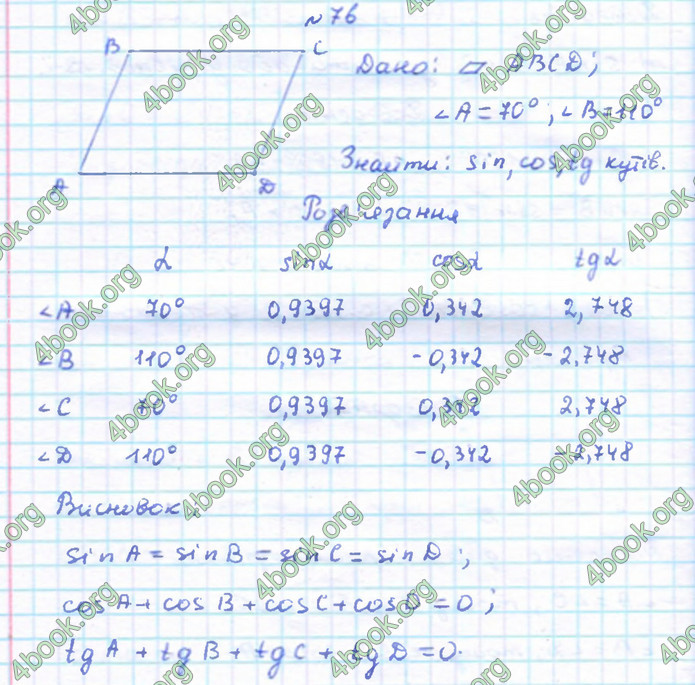 № 76
B C
Дано: ▱ ABCD;
∠A = 70°; ∠B = 110°
A D
Знайти: sin, cos, tg кутів.
Розв'язання
α sinα cosα tgα
∠A 70° 0,9397 0,342 2,748
∠B 110° 0,9397 -0,342 -2,748
∠C 70° 0,9397 0,342 2,748
∠D 110° 0,9397 -0,342 -2,748
Висновок
sin A = sin B = sin C = sin D;
cos A + cos B + cos C + cos D = 0;
tg A + tg B + tg C + tg D = 0.
4book.org